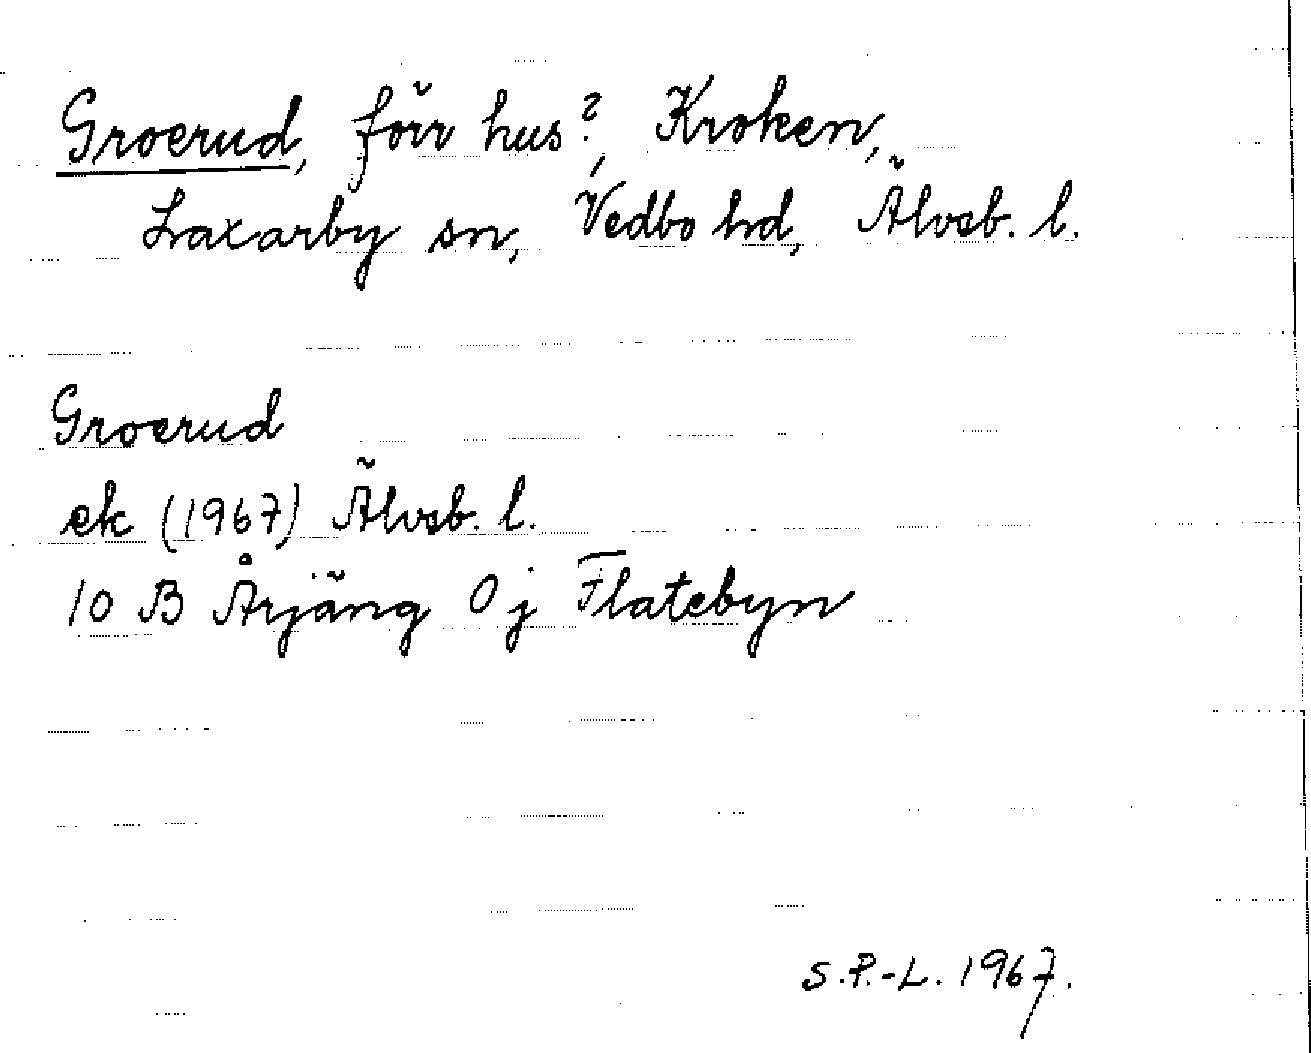 Groerud, förr hus?, Kroken,
Laxarby sn, Vedbo hd, Älvsb. l.
Groerud
ek (1967) Älvsb. l.
10 B Årjäng 0 j Flatebyn
S.P.-L. 1967.